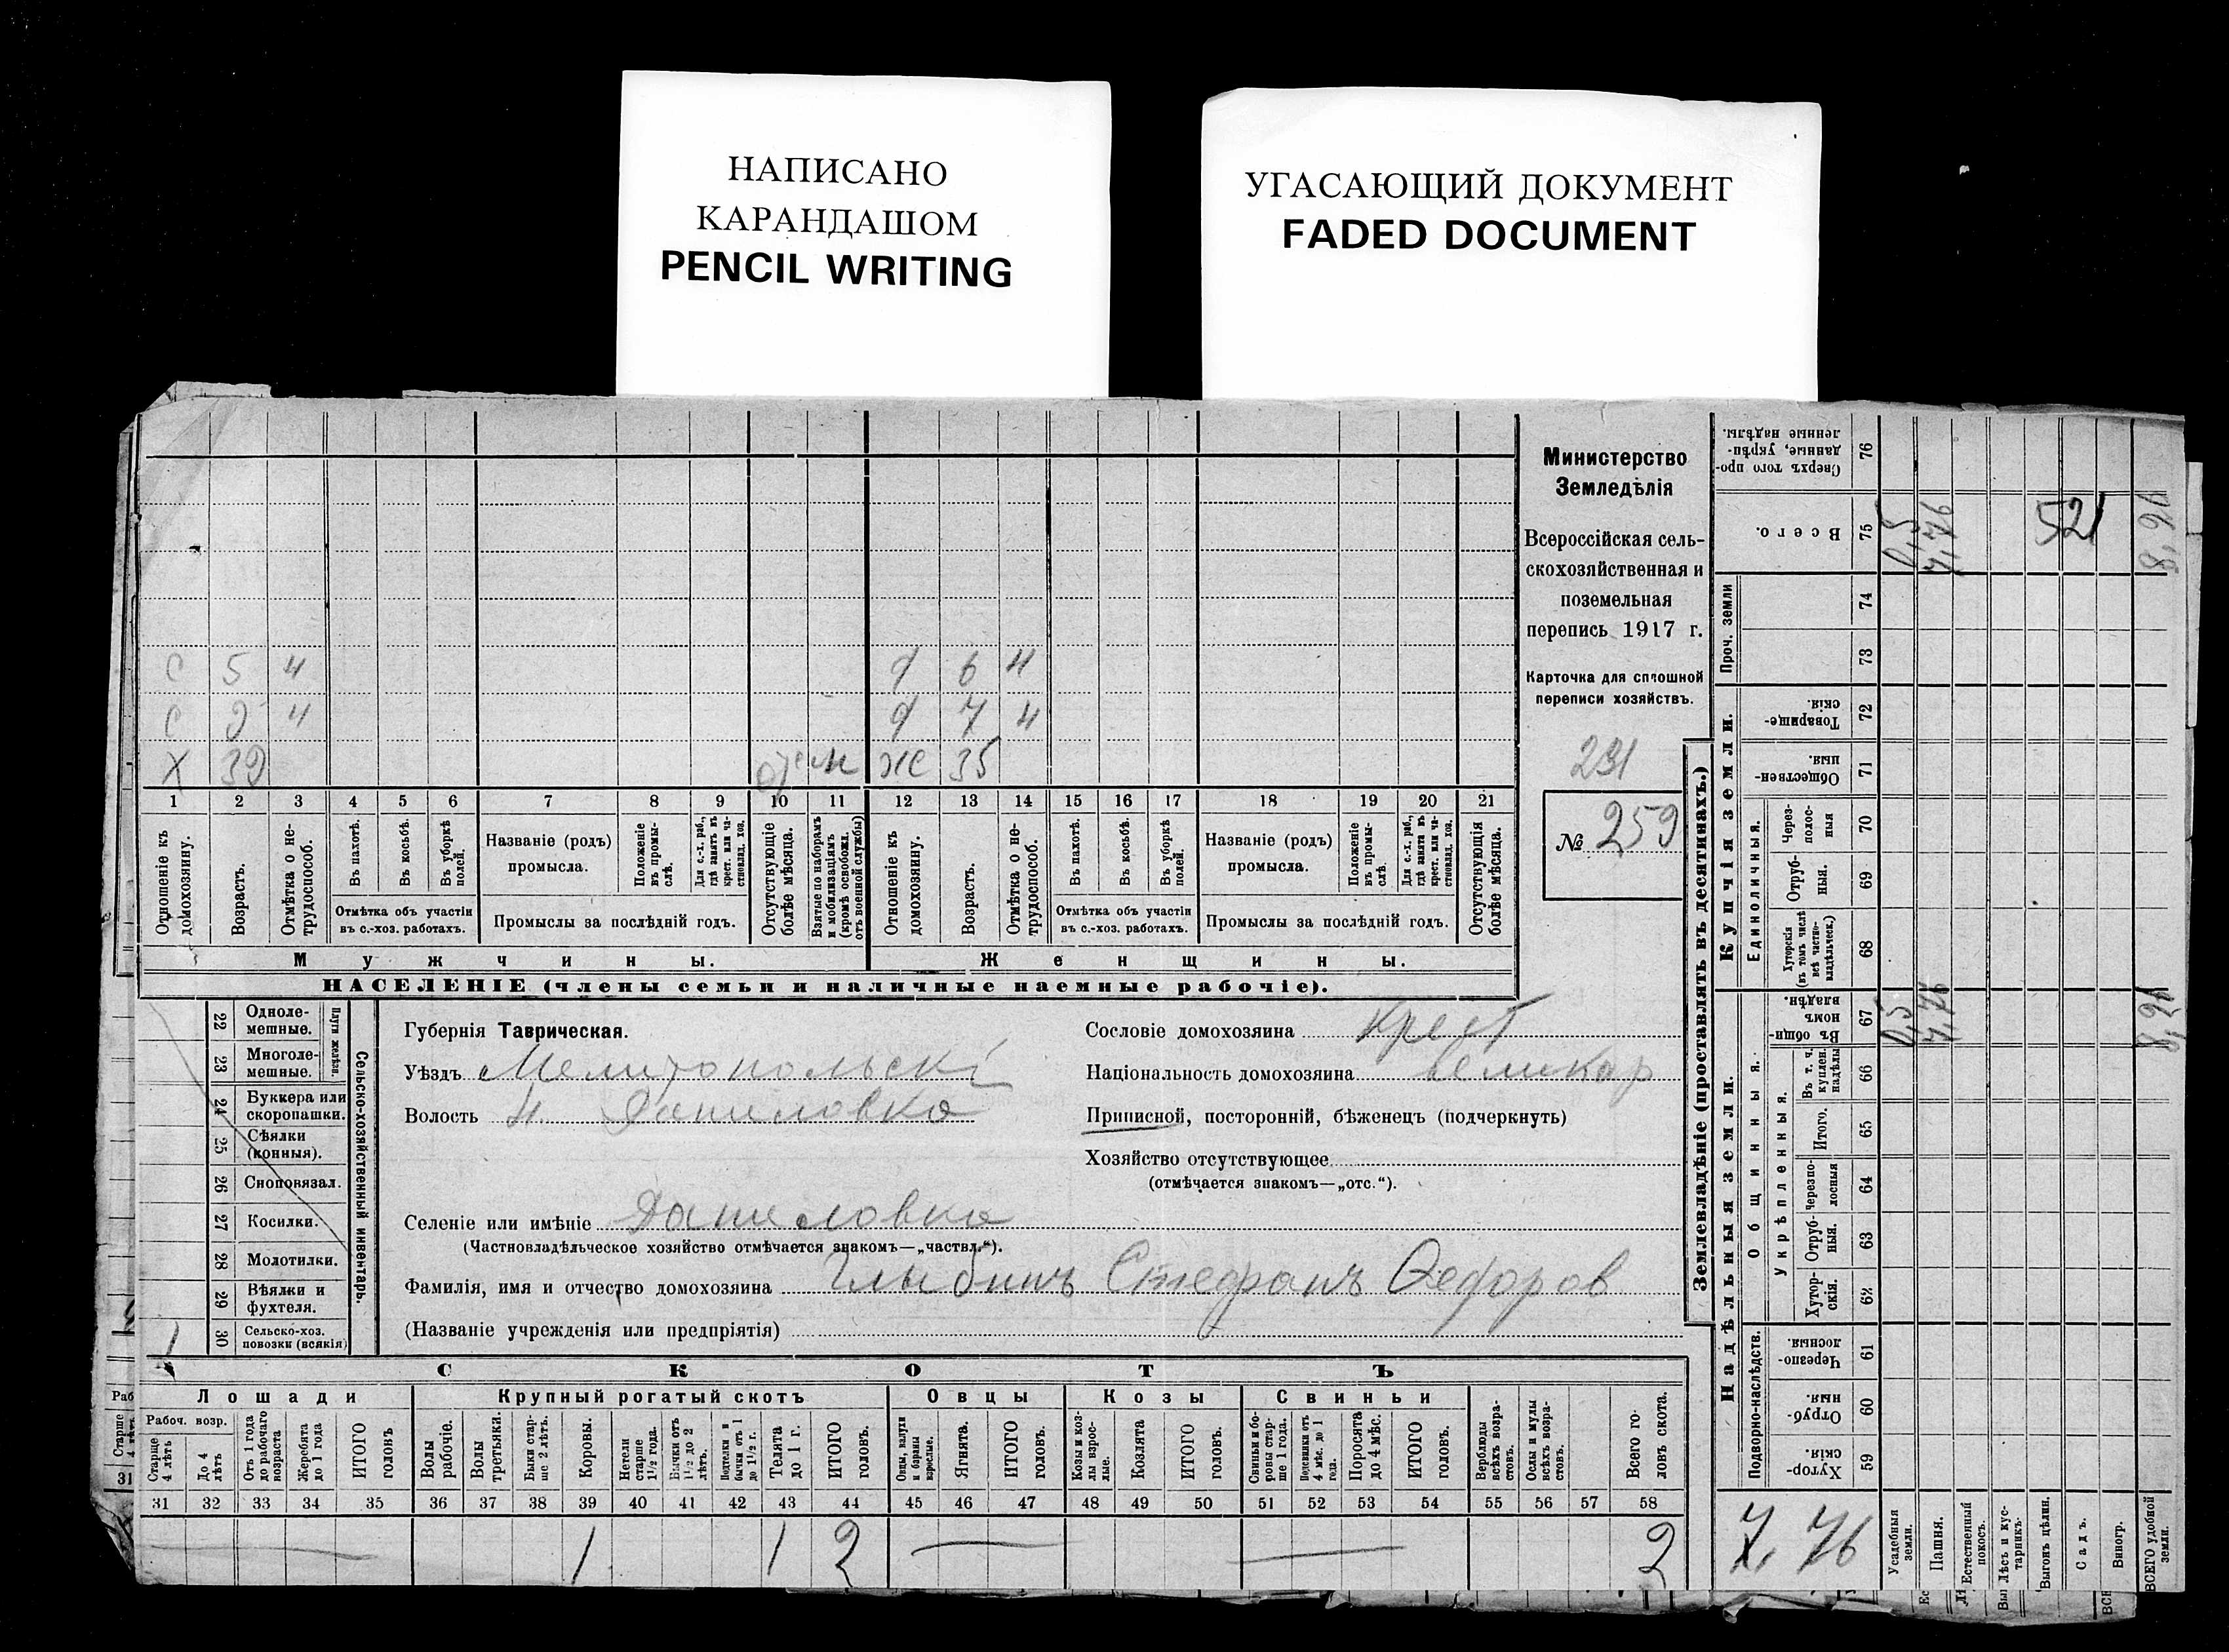 НАПИСАНО
КАРАНДАШОМ
PENCIL WRITING
УГАСАЮЩИЙ ДОКУМЕНТ
FADED DOCUMENT
С 5 4
С 9 4
Х 39
д 6 4
д 7 4
же 35
1 2 3 4 5 6 7 8 9 10 11 12 13 14 15 16 17 18 19 20 21
Отношеніе къ домохозяину.
Возрастъ.
Отмѣтка о нетрудоспособ.
Въ пахотѣ.
Въ косьбѣ.
Въ уборкѣ полей.
Отмѣтка объ участіи въ с.-хоз. работахъ.
Названіе (родъ) промысла.
Положеніе въ промыслѣ.
Для с.-х. раб., гдѣ занятъ въ крест. или частновлад. хоз.
Промыслы за послѣдній годъ.
Отсутствующіе болѣе мѣсяца.
Взятые по наборамъ и мобилизаціямъ (кромѣ освобожд. отъ военной службы)
Отношеніе къ домохозяину.
Возрастъ.
Отмѣтка о нетрудоспособ.
Въ пахотѣ.
Въ косьбѣ.
Въ уборкѣ полей.
Отмѣтка объ участіи въ с.-хоз. работахъ.
Названіе (родъ) промысла.
Положеніе въ промыслѣ.
Для с.-х. раб., гдѣ занята въ крест. или частновлад. хоз.
Промыслы за послѣдній годъ.
Отсутствующія болѣе мѣсяца.
Мужчины.
Женщины.
НАСЕЛЕНІЕ (члены семьи и наличные наемные рабочіе).
Министерство
Земледѣлія
Всероссійская сель-
скохозяйственная и
поземельная
перепись 1917 г.
Карточка для сплошной
переписи хозяйствъ.
231
№ 259
22 Одноле-
мешные.
23 Многоле-
мешные.
Плуги желѣзн.
24 Буккера или
скоропашки.
25 Сѣялки
(конныя).
26 Сноповязал.
27 Косилки.
28 Молотилки.
29 Вѣялки и
фухтеля.
30 Сельско-хоз.
повозки (всякія)
1
Сельско-хозяйственный инвентарь.
Губернія Таврическая.
Уѣздъ Мелитопольскі
Волость Н. Даниловка
Селеніе или имѣніе Даниловка
(Частновладѣльческое хозяйство отмѣчается знакомъ—„частвл.“).
Фамилія, имя и отчество домохозяина Глыбинъ Стефанъ Ѳедоров
(Названіе учрежденія или предпріятія)
Сословіе домохозяина Крест
Національность домохозяина великор
Приписной, посторонній, бѣженецъ (подчеркнуть)
Хозяйство отсутствующее
(отмѣчается знакомъ—„отс.“).
СКОТЪ
Лошади
Крупный рогатый скотъ
Овцы
Козы
Свиньи
Рабоч. возр.
Старше 4 лѣтъ
До 4 лѣтъ
Отъ 1 года до рабочаго возраста
Жеребята до 1 года
ИТОГО головъ
Волы рабочіе.
Волы третьяки.
Быки старше 2 лѣтъ.
Коровы.
Нетели старше 1½ года.
Бычки отъ 1½ до 2 лѣтъ.
Подтелки и бычки отъ 1 до 1½ г.
Телята до 1 г.
ИТОГО головъ.
Овцы, валухи и бараны взрослые.
Ягнята.
ИТОГО головъ.
Козы и козлы взрослые.
Козлята
ИТОГО головъ.
Свиньи и боровы старше 1 года.
Подсвинки отъ 4 мѣс. до 1 года.
Поросята до 4 мѣс.
ИТОГО головъ.
Верблюды всѣхъ возрастовъ.
Ослы и мулы всѣхъ возрастовъ.
Всего головъ скота.
31 32 33 34 35 36 37 38 39 40 41 42 43 44 45 46 47 48 49 50 51 52 53 54 55 56 57 58
1 1 2 2
Землевладѣніе (проставлять въ десятинахъ.)
Надѣльныя земли.
Купчія земли.
Проч. земли
Сверхъ того проданные, укрѣпленные надѣлы. 76
Всего. 75
74
73
Товарищескія. 72
Общественныя. 71
Единоличныя.
Черезполосныя 70
Отрубныя. 69
Хуторскія (въ томъ числѣ всѣ частновладѣльческ.) 68
Общинныя.
Въ общинномъ владѣн. 67
Укрѣпленныя.
Въ т. ч. куплен. надѣлы 66
Итого. 65
Черезполосныя 64
Отрубныя. 63
Хуторскія. 62
Подворно-наслѣдств.
Черезполосныя. 61
Отрубныя. 60
Хуторскія. 59
7,76
Усадебныя земли.
Пашня.
Естественный покосъ.
Лѣсъ и кустарникъ.
Выгонъ цѣлин.
Садъ.
Виногр.
ВСЕГО удобной земли.
0,5
7,76
521
8,26
0,5
7,76
8,26